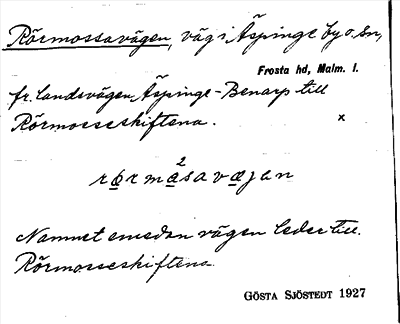 Rörmossavägen, väg i Äspinge by o. sn,
Frosta hd, Malm. l.
fr. landsvägen Äspinge - Benarp till
Rörmosseskiftena. x
2
rörmåsavæjan
Namnet emedan vägen leder till
Rörmosseskiftena.
GÖSTA SJÖSTEDT 1927